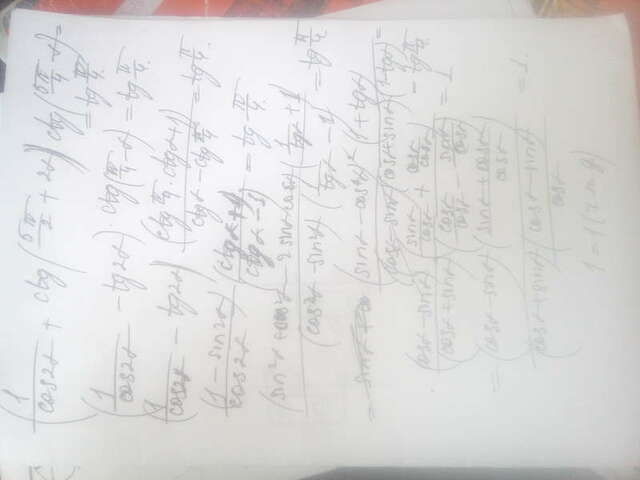 (1/cos2α + ctg(5π/2 + 2α)) ctg(5π/4 - α) = tg π/4
(1/cos2α - tg2α) ctg(π/4 - α) = tg π/4
(1/cos2α - tg2α) (ctg π/4 · ctgα + 1)/(ctgα - ctg π/4) = tg π/4.
(1 - sin2α/cos2α) (ctgα + 1)/(ctgα - 1) = tg π/4.
(sin²α + cos²α - 2 sinα cosα)/(cos²α - sin²α) (1/tgα + 1)/(1/tgα - 1) = tg π/4
= (sinα - cosα)² (1 + tgα)/(cosα - sinα)(cosα + sinα)(1 - tgα) = tg π/4.
(cosα - sinα)/(cosα + sinα) (sinα/cosα + cosα/cosα)/(cosα/cosα - sinα/cosα) = 1
= (cosα - sinα)/(cosα + sinα) ((sinα + cosα)/cosα)/((cosα - sinα)/cosα) = 1.
1 = 1 (ч. т. д)